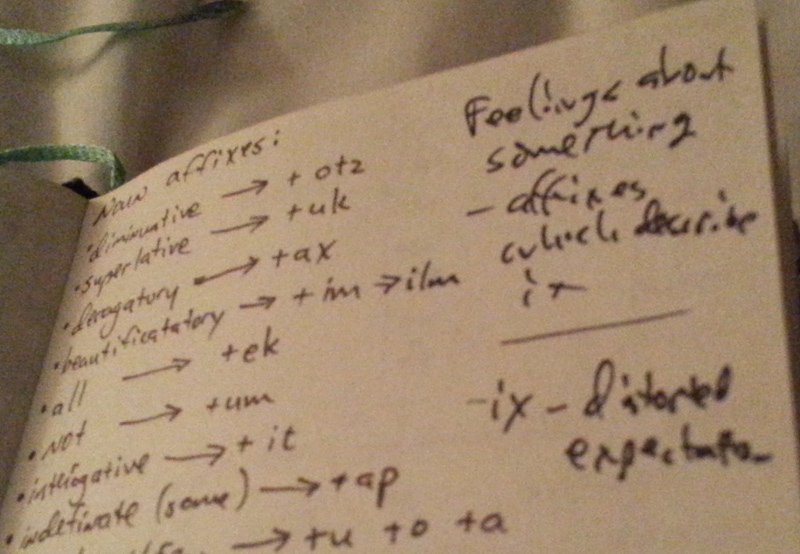 Noun affixes:
• diminuative → + otz
• superlative → + uk
• derogatory → + ax
• beautificatatory → + im → ilm
• all → + ek
• not → + um
• intérrogative → + it
• indefinate (some) → + ap
→ + u + o + a
Feelings about
something
- affixes
which describe
it
-ix - distorted